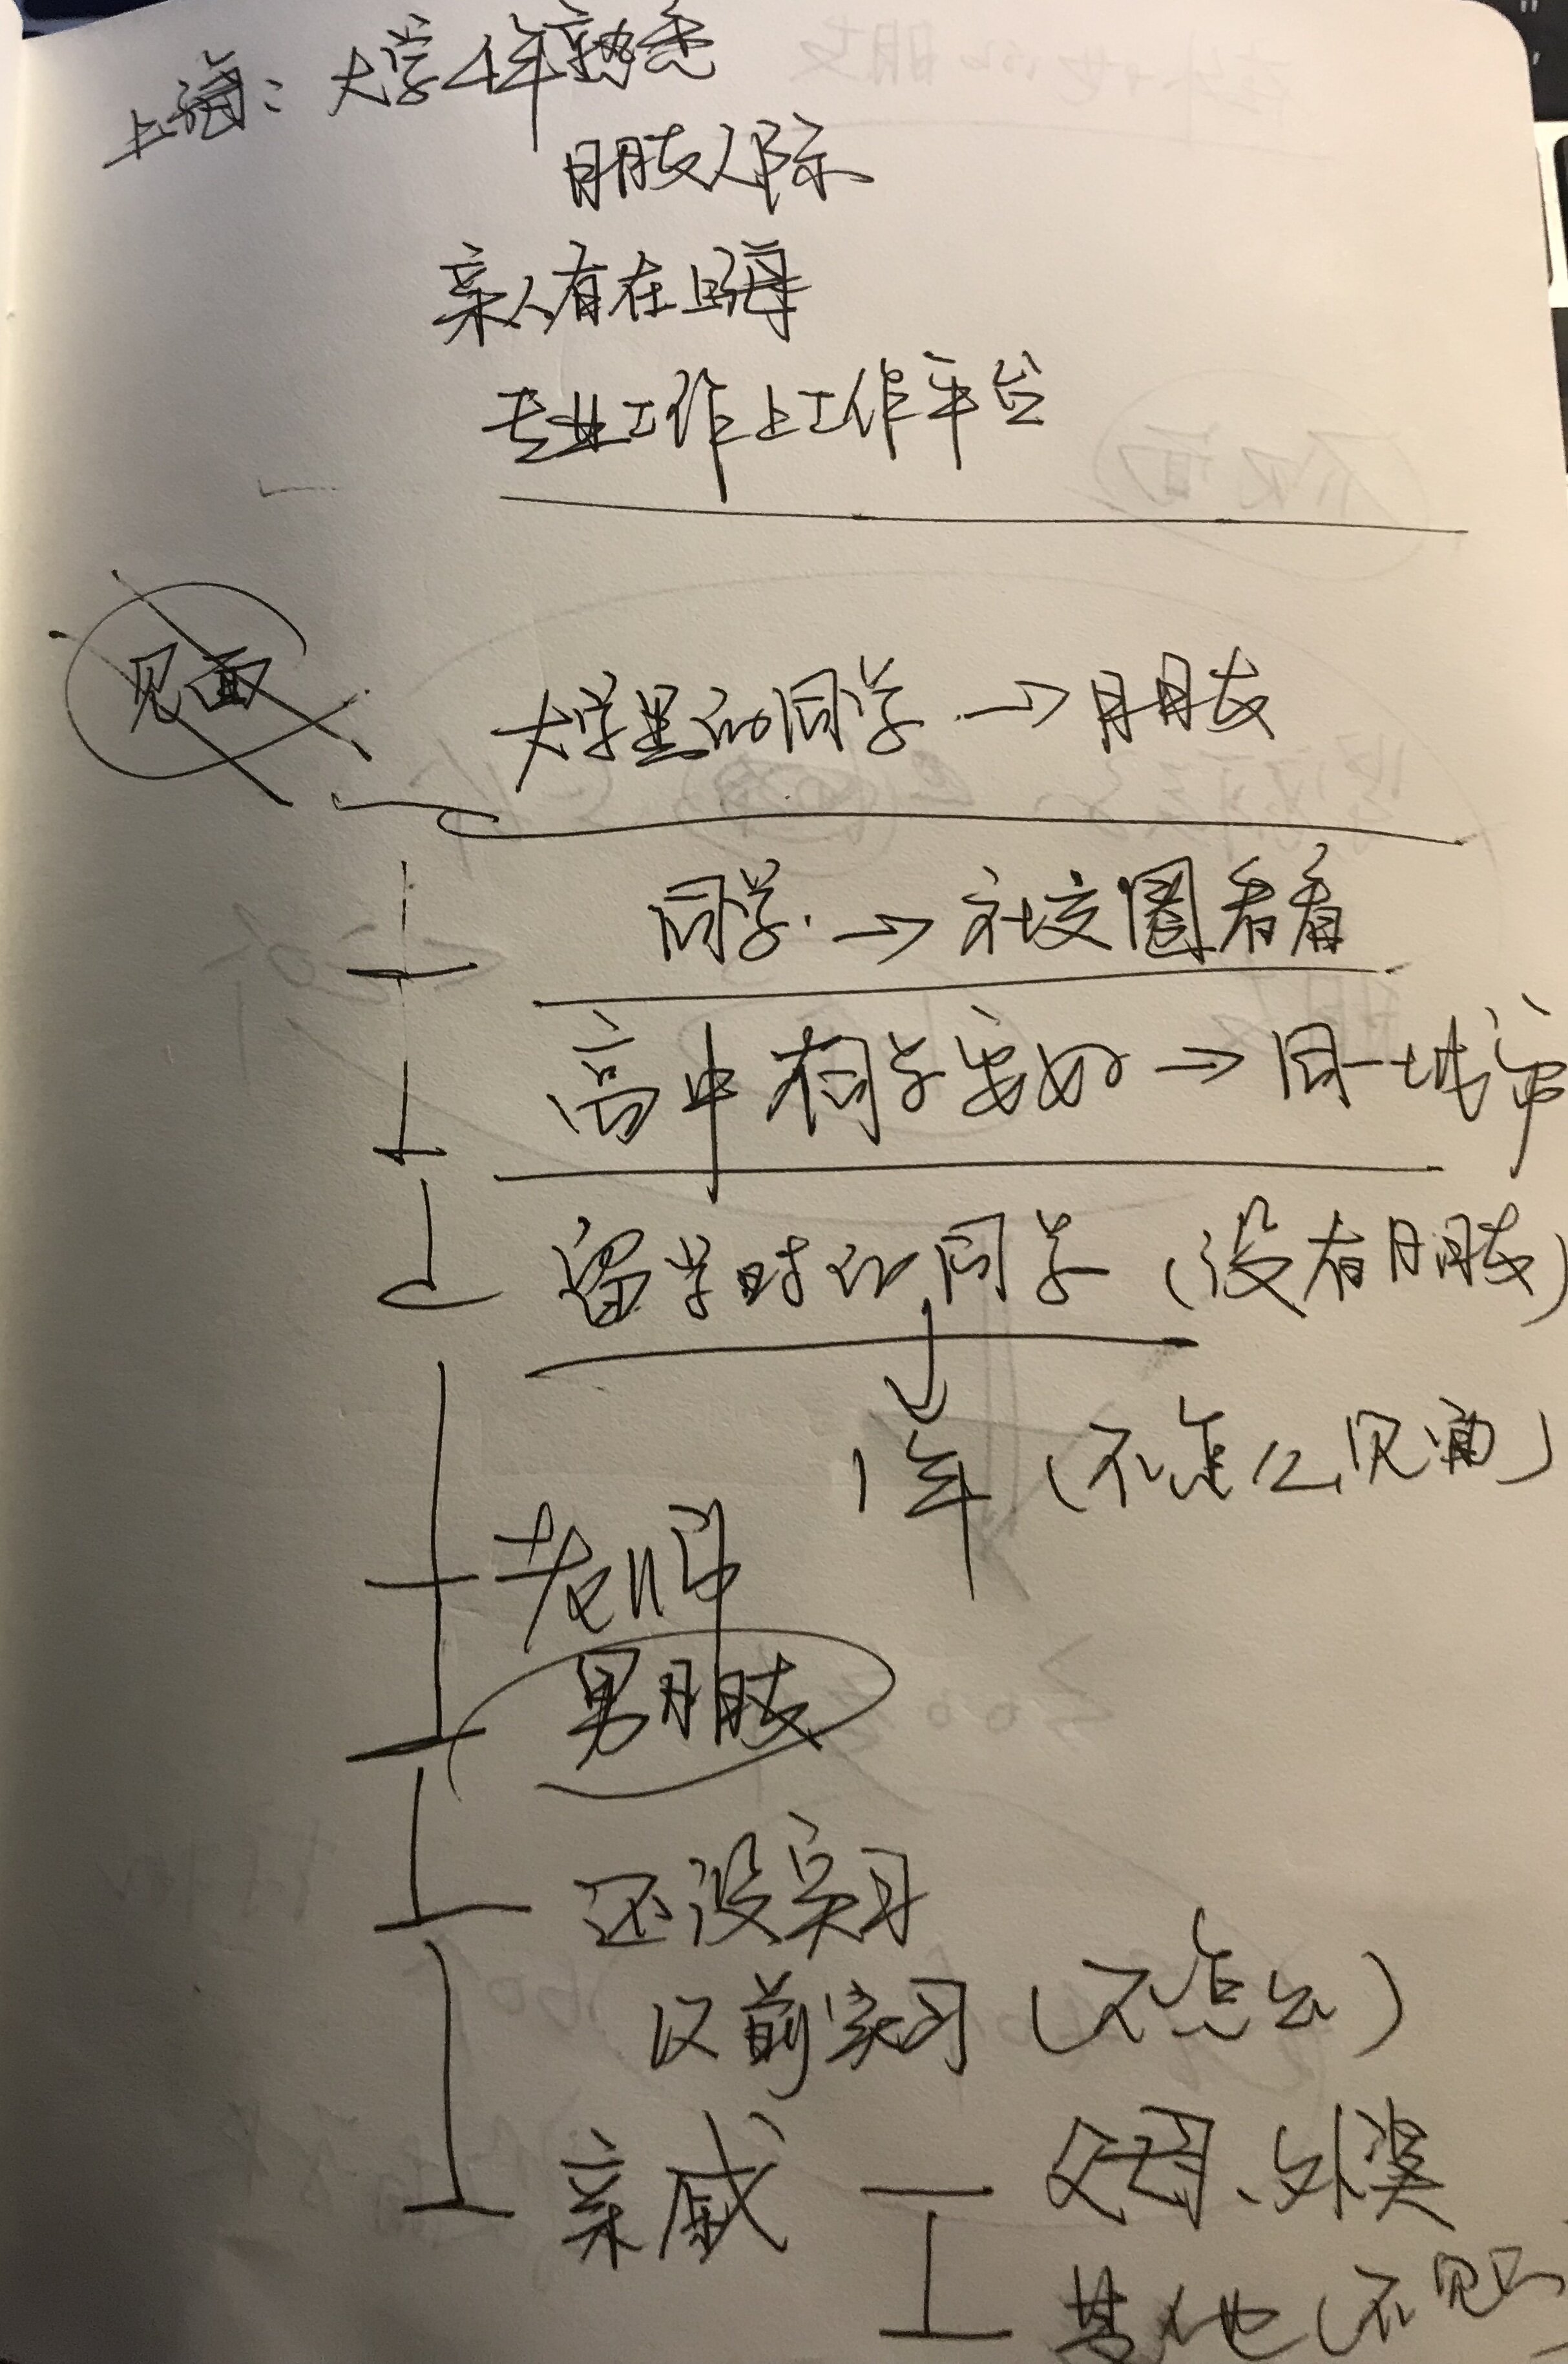 上海：大学4年熟悉
朋友人际
亲人有在上海
专业工作上工作平台
见面
大学里的同学 → 朋友
同学 → 社交圈看看
高中有同学要好 → 同一城市
留学时的同学（没有朋友）
1年（不怎么见面）
老师
男朋友
还没实习
以前实习（不怎么）
亲戚 — 父母、外婆
其他（不见